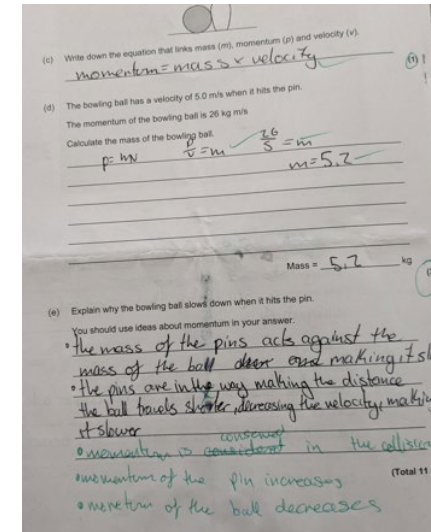 (c) Write down the equation that links mass (m), momentum (p) and velocity (v).
momentum = mass x velocity
(1)
(d) The bowling ball has a velocity of 5.0 m/s when it hits the pin.
The momentum of the bowling ball is 26 kg m/s
Calculate the mass of the bowling ball.
p = mv p/v = m 26/5 = m
m = 5.2
Mass = 5.2 kg
(e) Explain why the bowling ball slows down when it hits the pin.
You should use ideas about momentum in your answer.
• the mass of the pins acts against the
mass of the ball making it sl
• the pins are in the way making the distance
the ball travels shorter, decreasing the velocity, makin
it slower
conserved
• momentum is in the collision
• momentum of the pin increases
(Total 11
• momentum of the ball decreases